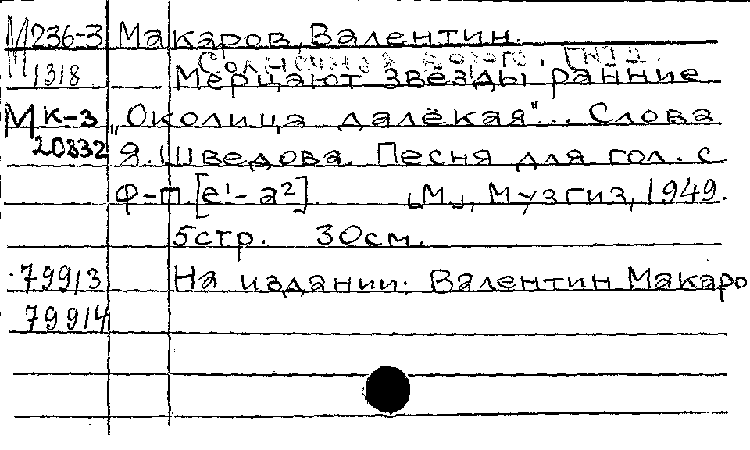 М 236-3 Макаров, Валентин.
М 1318 Мерцают звёзды ранние
М к-3 „Околица далёкая"... Слова
20832 Я. Шведова. Песня для гол. с
ф-п. [e¹- a²] [М.], Музгиз, 1949.
5стр. 30см.
79913 На издании: Валентин Макаро
79914